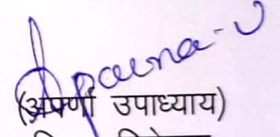 Aparna-U
(अपर्णा उपाध्याय)